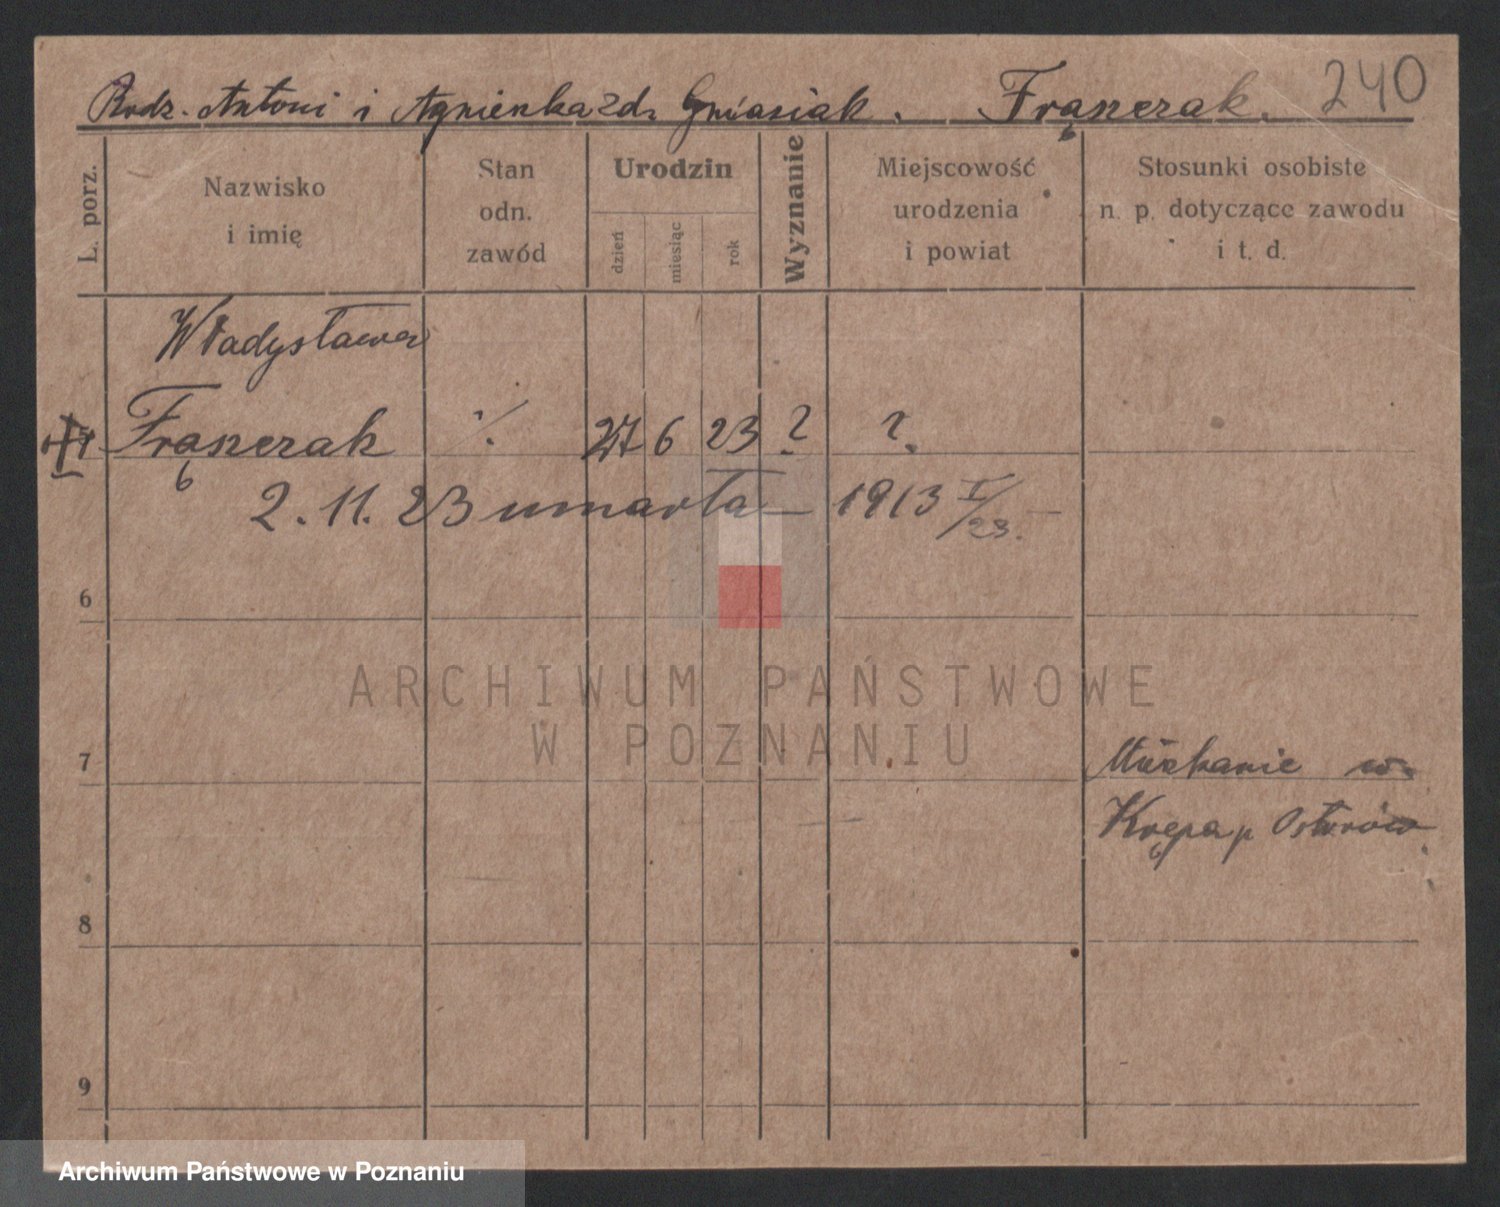 Rodz. Antoni i Agnieszka zd. Gniasiak. Frąszczak. 240
L. porz.
Nazwisko i imię
Stan odn. zawód
Urodzin
dzień
miesiąc
rok
Wyznanie
Miejscowość urodzenia i powiat
Stosunki osobiste n. p. dotyczące zawodu i t. d.
Władysława
Frąszczak ·/. 27 6 23 ? ?
2. 11. 23 umarła — 1913 I/23. —
6
7
8
9
w
Krępa p Ostrów
ARCHIWUM PAŃSTWOWE
W POZNANIU
Archiwum Państwowe w Poznaniu